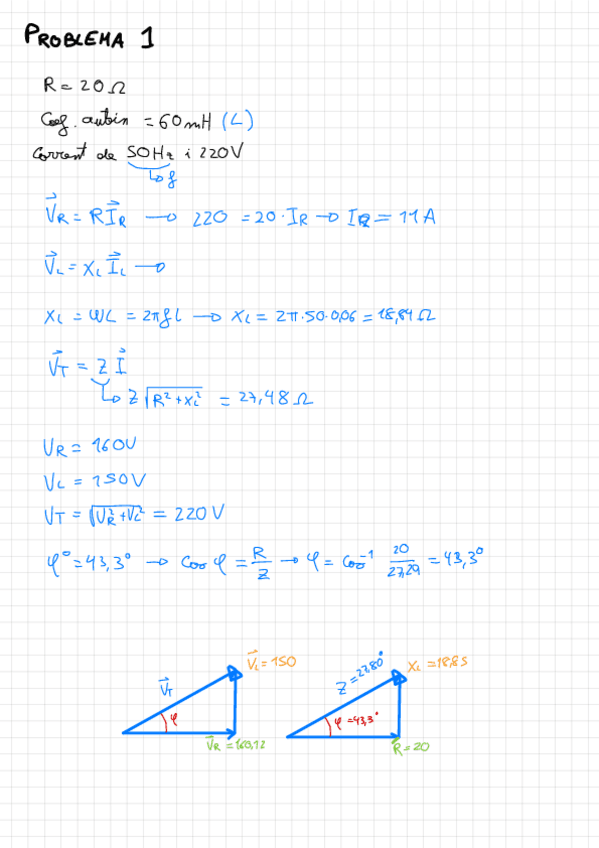 PROBLEMA 1
R = 20 Ω
Coef. autoin = 60 mH (L)
Corrent de 50Hz i 220V
↳ f
V⃗R = R I⃗R → 220 = 20 · IR → IR = 11 A
V⃗L = XL I⃗L →
XL = WL = 2πfL → XL = 2π·50·0,06 = 18,84 Ω
V⃗T = Z I⃗
↳ Z √(R² + XL²) = 27,48 Ω
VR = 160V
VL = 150V
VT = √(VR² + VL²) = 220 V
φ° = 43,3° → cos φ = R/Z → φ = cos⁻¹ 20/27,29 = 43,3°
V⃗L = 150
V⃗T
φ
V⃗R = 160,12
XL = 18,85
Z = 27,80°
φ = 43,3°
R = 20